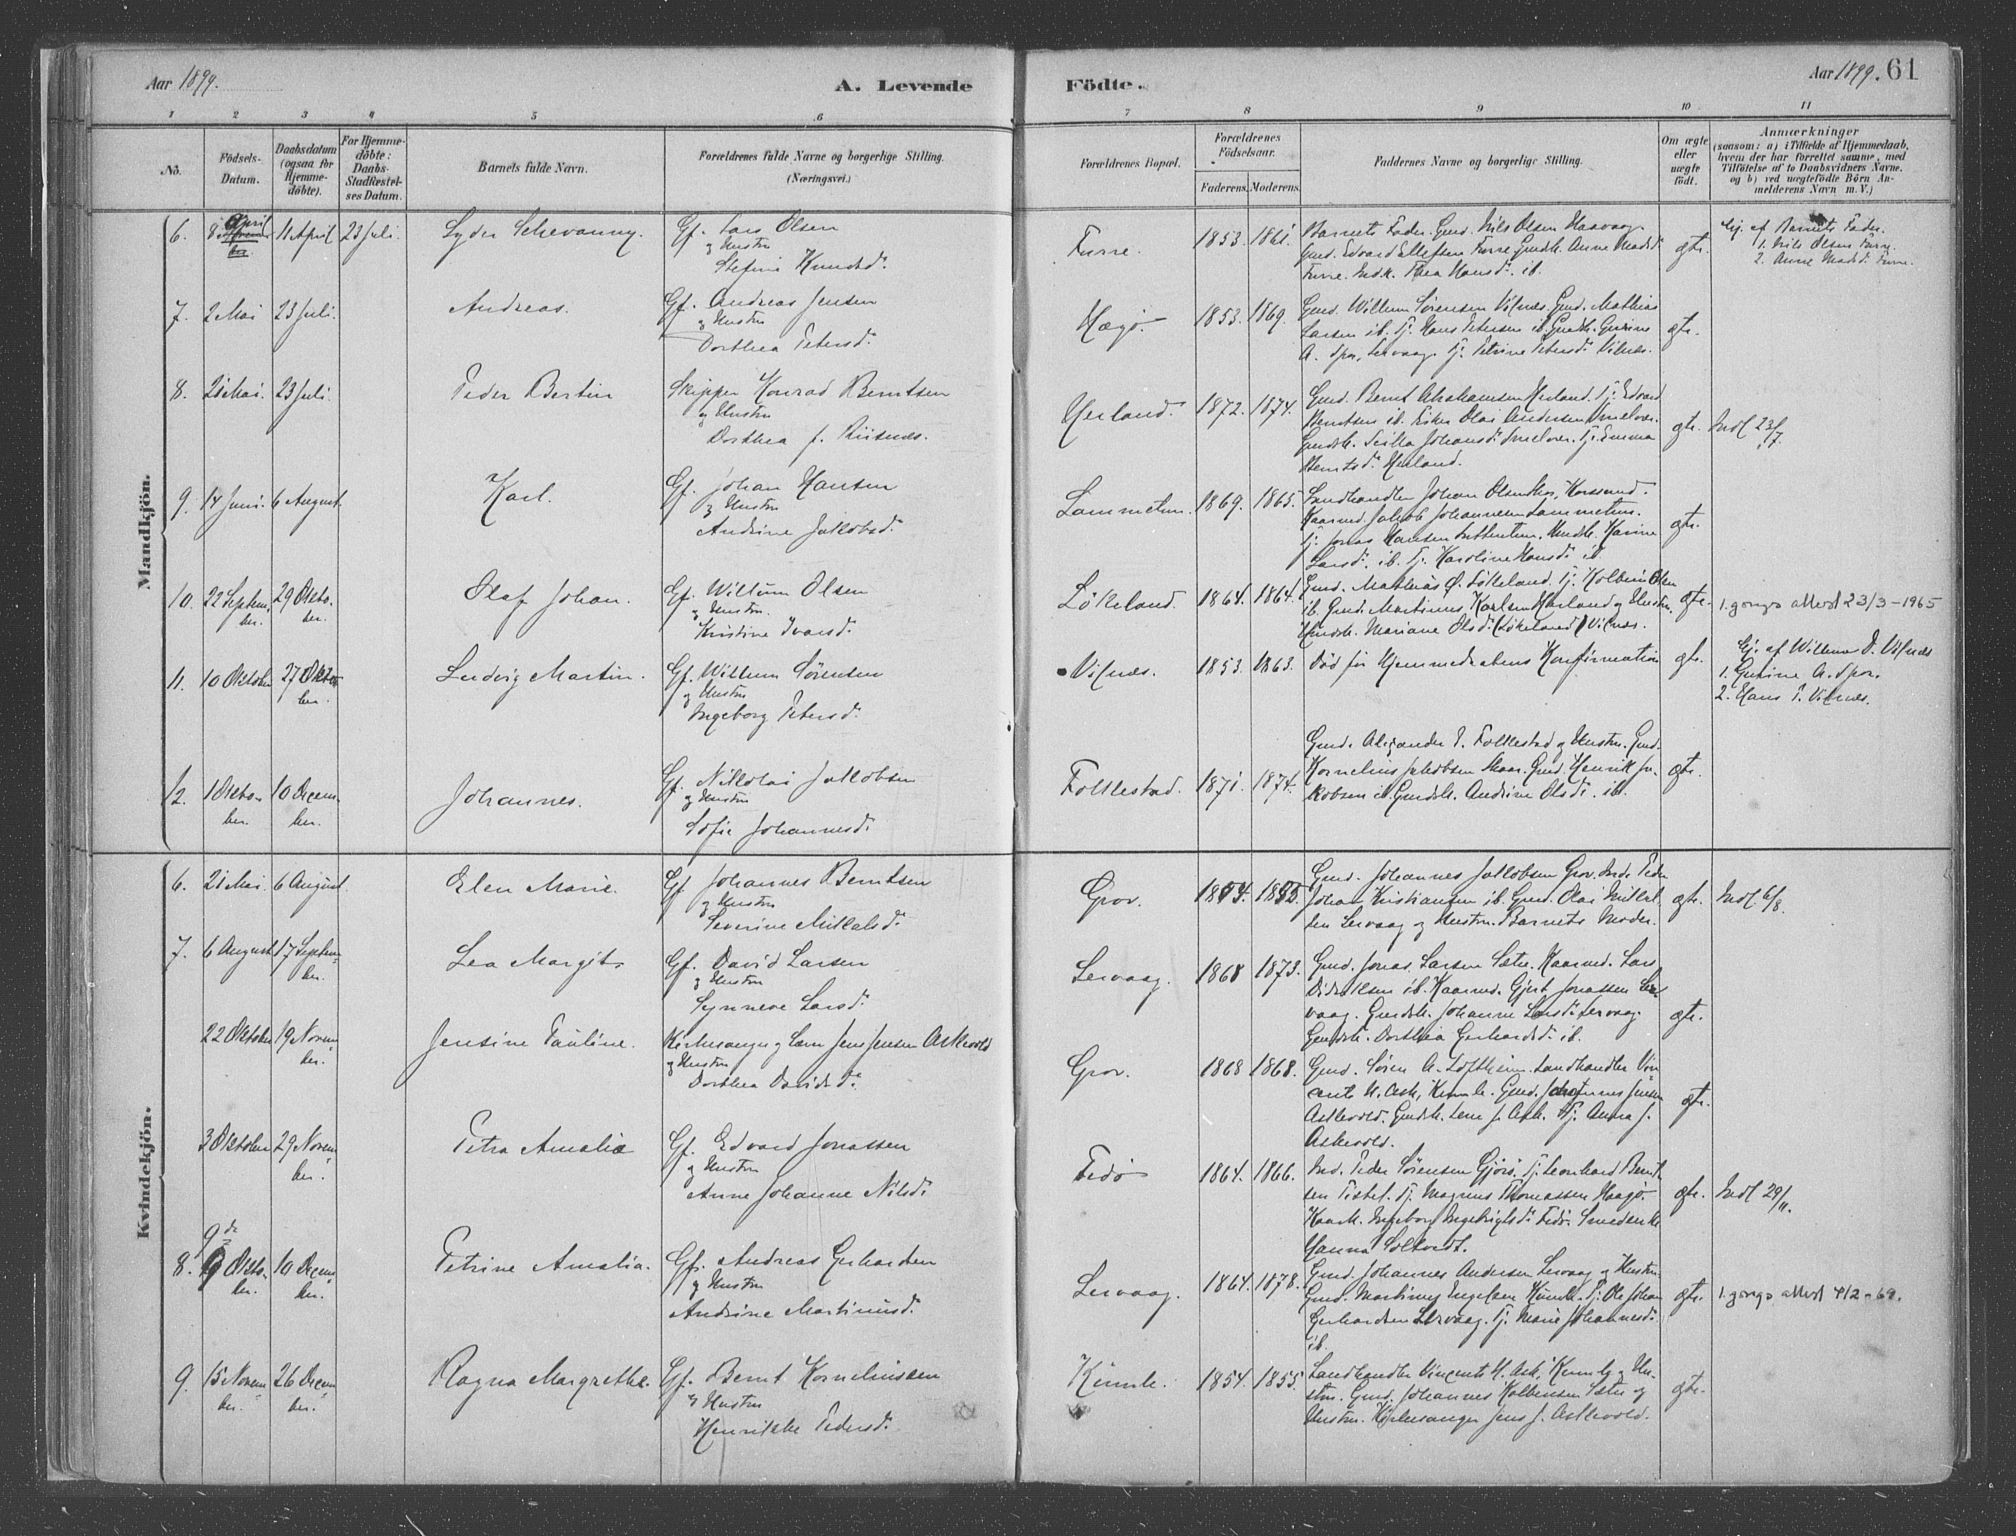 Aar 1899.
A. Levende
Födte.
Aar 1899. 61
1 2 3 4 5 6 7 8 9 10 11
No.
Födsels-Datum.
Daabsdatum (ogsaa for Hjemme-döbte).
For Hjemme-döbte: Daabs-Stadfestel-ses Datum.
Barnets fulde Navn.
Forældrenes fulde Navne og borgerlige Stilling.
(Næringsvei.)
Forældrenes Bopæl.
Forældrenes Födselsaar.
Faderens. Moderens.
Faddernes Navne og borgerlige Stilling.
Om ægte eller uægte födt.
Anmærkninger
(saasom: a) i Tilfælde af Hjemmedaab, hvem der har forrettet samme, med Tilföielse af to Daabsvidners Navne. og b) ved uægtefödte Börn An-melderens Navn m. V.)
Mandkjön.
6. 8 April 11 April 23 Juli. Lyder Schevanny. Gf. Lars Olsen
og Hustru
Stefine Knudsd.
Furre. 1853. 1861. Barnets Fader. Gmd. Nils Olsen
Furre Gmdk. Anne Madsd.
Furre. Thea Hansd. ib.
gte. Hj. af Barnets Fader.
1. Nils Olsen Furre.
2. Anne Madsd. Furre.
7. 2 Mai 23 Juli. Andreas. Gf. Andreas Jensen
og Hustru
Dorthea Petersd.
Hægø. 1853. 1869. Gmd. Willum Sørensen Vilnæs. Gmd. Mathias
Larsen ib. Tj. Hans Petersen ib. Gmdk. Gurine
A. Spor, Lervaag. Tj. Petrine Petersd. Vilnæs.
gte.
8. 21 Mai. 23 Juli. Peder Bertin Skipper Konrad Berntsen
og Hustru
Dorthea f. Riisnæs.
Herland. 1872. 1874. Gmd. Bernt Abrahamsen Herland. Tj. Edvard
Berntsen ib. Fisker Olai Andersen
Gmdk. Johansd. Tj. Emma
Berntsd. Herland.
gte. Indl 23/7.
9. 14 Juni. 6 August. Karl. Gf. Johan Hansen
og Hustru
Andrine Jakobsd.
Lammetun. 1869. 1865. Landhandler Johan Olsen
Kaarmd. Jakob Johannesen Lammetun.
Tj. Jonas Hansen Hmdk. Karine
Larsd. ib. Tj. Karoline Hansd. ib.
gte.
10. 22 Septem-ber. 29 Okto-ber. Olaf Johan. Gf. Willum Olsen
og Hustru.
Kristine Ivarsd.
Løkeland. 1864. 1864. Gmd. Mathias O. Løkeland. Tj. Kolbein Olsen
ib. Gmd. Martinus Karlsen Herland og Hustru.
Gmdk. Mariane Olsd. (Løkeland) Vilnæs.
gte. 1. gangs attest 23/3-1965
11. 10 Oktober 27 Okto-ber. Ludvig Martin. Gf. Willum Sørensen
og Hustru
Ingeborg Petersd.
Vilnæs. 1853. 1863. Død før Hjemmedaabens Konfirmation
gte. Hj. af Willum S. Vilnæs
1. Gurine A. Spor.
2. Hans P. Vilnæs.
12. 1 Okto-ber. 10 Decem-ber. Johannes. Gf. Nikolai Jakobsen
og Hustru
Sofie Johannesd.
Folkestad. 1871. 1874. Gmd. Alexander E. Folkestad og Hustru. Gmd.
Kornelius Jakobsen Skaar. Gmd. Henrik Ja-
kobsen ib. Gmdk. Andrine Olsd. ib.
gte.
Kvindekjön.
6. 21 Mai. 6 August. Elen Marie. Gf. Johannes Berntsen
og Hustru
Severine Mikkelsd.
Grov. 1854. 1855. Gmd. Johannes Jakobsen Grov. Peder
Johan Kristiansen ib. Gmd. Olai Mikkel-
sen Lervaag og Hustru. Barnets Moder.
gte. Indl 6/8.
7. 6 August 17 Septem-ber. Lea Margit. Gf. David Larsen
og Hustru
Synneve Larsd.
Lervaag. 1868 1873. Gmd. Jonas Larsen Sætre. Kaarmd. Lars
Didriksen ib. Kaarmd. Gjert Jonassen Ler-
vaag. Gmdk. Johanne Larsd. Lervaag
Gmdk. Dorthea Gerhardsd. ib.
gte.
22 Oktober 19 Novem-ber. Jensine Pauline. Kirkesanger og Lærer Jens Jensen Askevold
og Hustru
Dorthea Davidsd.
Grov. 1868 1868. Gmd. Søren A. Loftheim. Landhandler Vin-
cents H. Ask, Kumle. Gmd. Johannes Jensen
Askevold. Gmdk. Lene J. Ask. Tj. Anna J.
Askevold.
gte.
3 Oktober 29 Novem-ber. Petra Amalie Gf. Edvard Jonassen
og Hustru
Anne Johanne Nilsd.
Fedø 1864. 1866. Peder Sørensen Gjørø. Tj. Leonhard Bernt-
sen Tistel. Tj. Magnus Thomassen Haagø.
Ingeborg Ingebrigtsd. Fedø.
Hanna Solkvedt.
gte. Indl 29/11.
8. 9de Okto-ber. 10 Decem-ber. Petrine Amalia. Gf. Andreas Gerhardsen
og Hustru
Andrine Martinusd.
Lervaag. 1864. 1878. Gmd. Johannes Andersen Lervaag og Hustru.
Gmd. Martinus Kumle. Tj. Ole Johan
Gerhardsen Lervaag. Tj. Marie Johannesd.
ib.
gte. 1. gangs attest 4/2-69.
9. 15 Novem-ber. 26 Decem-ber. Ragna Margrethe. Gf. Bernt Korneliussen
og Hustru
Henrikke Pedersd.
Kumle. 1854. 1855. Landhandler Vincents H. Ask, Kumle og Hu-
stru. Gmd. Johannes Kolbeinsen Sætre og
Hustru. Kirkesanger Jens J. Askevold.
gte.